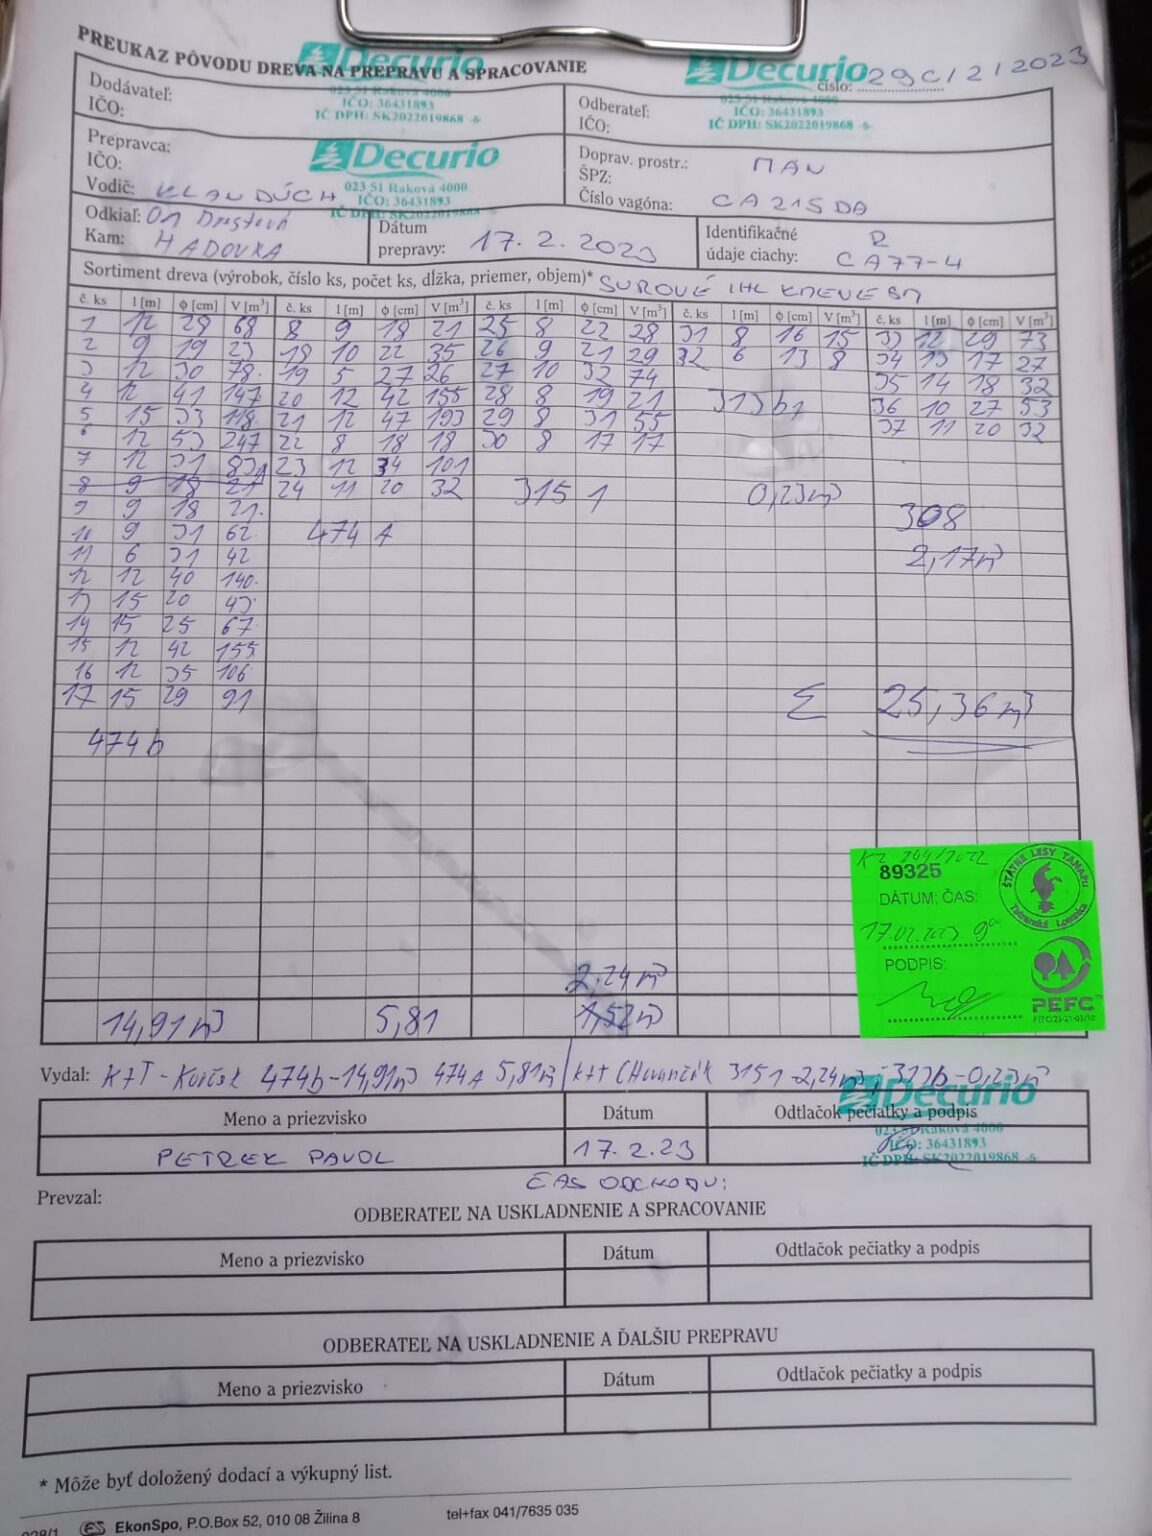 PREUKAZ PÔVODU DREVA NA PREPRAVU A SPRACOVANIE
Decurio
023 51 Raková 4000
IČO: 36431893
IČ DPH: SK2022019868 -6-
Decurio
číslo: 29C/2/2023
IČO: 36431893
IČ DPH: SK2022019868 -6-
Dodávateľ:
IČO:
Odberateľ:
IČO:
Prepravca:
IČO:
Vodič: KLAN DÚCH
Decurio
023 51 Raková 4000
IČO: 36431893
IČ DPH: SK2022019868 -6-
Doprav. prostr.: MAN
ŠPZ:
Číslo vagóna: CA 215 DA
Odkiaľ: On
Kam: HADOVKA
Dátum prepravy: 17. 2. 2023
Identifikačné údaje ciachy: R CA77-4
Sortiment dreva (výrobok, číslo ks, počet ks, dĺžka, priemer, objem)* SUROVÉ IHL KMENE
č. ks l [m] φ [cm] V [m³] č. ks l [m] φ [cm] V [m³] č. ks l [m] φ [cm] V [m³] č. ks l [m] φ [cm] V [m³] č. ks l [m] φ [cm] V [m³]
1 12 28 68 8 9 18 21 25 8 22 28 31 8 16 15 33 12 29 73
2 9 19 23 18 10 22 35 26 9 21 29 32 6 13 8 34 13 17 27
3 12 30 78 19 5 27 26 27 10 32 74 35 14 18 32
4 12 41 147 20 12 42 155 28 8 19 21 313 b1 36 10 27 53
5 15 33 118 21 12 47 193 29 8 31 55 37 11 20 32
6 12 53 247 22 8 18 18 30 8 17 17
7 12 31 83 23 12 34 101
8 9 18 21 24 11 20 32 315 1 0,23m³
9 9 18 21 308
10 9 31 62 474 A
11 6 31 42 2,17m³
12 12 40 140
13 15 20 43
14 15 25 67
15 12 42 155
16 12 35 106
17 15 29 91 Σ 25,36m³
474 b
KZ 244/2022
89325
DÁTUM; ČAS:
17.02.2023 9⁰⁰
PODPIS:
ŠTÁTNE LESY TANAPU
Tatranská Lomnica
PEFC
2.24m³
14,91m³ 5,81 1,52m³
Vydal: 474b-14,91m³ 474A 5,81m³ 3151-2,24m³, 313b-0,23m³
Decurio
023 51 Raková 4000
IČO: 36431893
IČ DPH: SK2022019868 -6-
Meno a priezvisko Dátum Odtlačok pečiatky a podpis
PETREK PAVOL 17. 2. 23
ČAS ODCHODU:
Prevzal:
ODBERATEĽ NA USKLADNENIE A SPRACOVANIE
Meno a priezvisko Dátum Odtlačok pečiatky a podpis
ODBERATEĽ NA USKLADNENIE A ĎALŠIU PREPRAVU
Meno a priezvisko Dátum Odtlačok pečiatky a podpis
* Môže byť doložený dodací a výkupný list.
EkonSpo, P.O.Box 52, 010 08 Žilina 8 tel+fax 041/7635 035